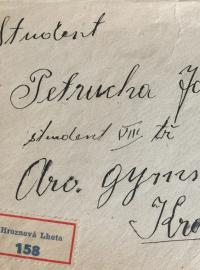 Student
Petrucha Jo
student VIII tř
Arc. gymn
Kro
Hroznová Lhota
158